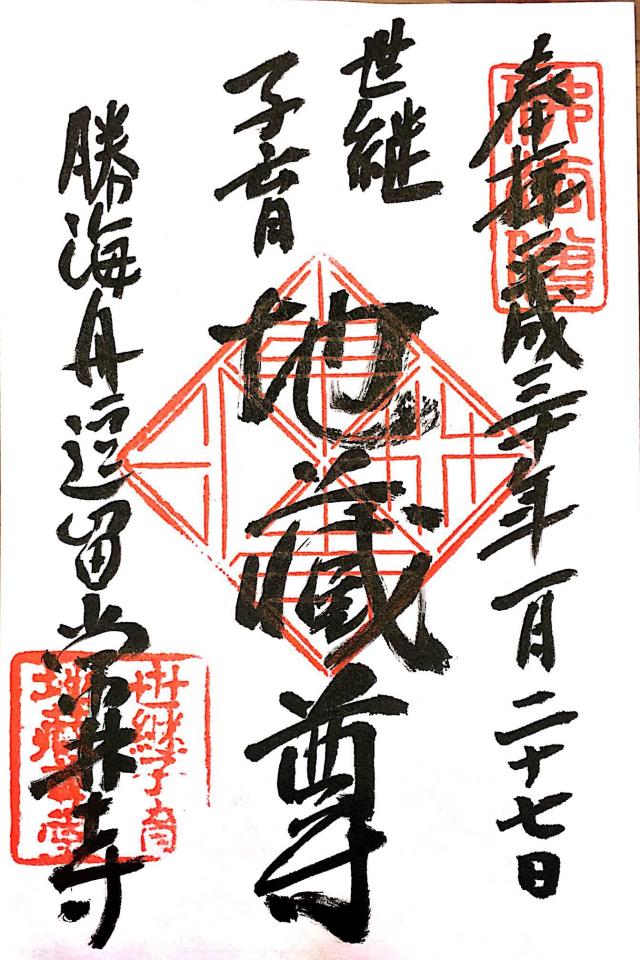 奉拝 平成三十年一月二十七日
世継
子育
地蔵尊
勝海舟逗留 常林寺
佛法僧
世継子育
地蔵尊